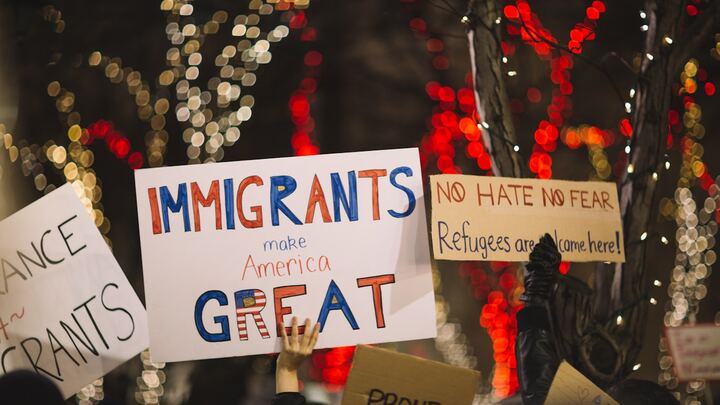 IMMIGRANTS
make
America
GREAT
NO HATE NO FEAR
Refugees are here!
RANCE
GRANTS